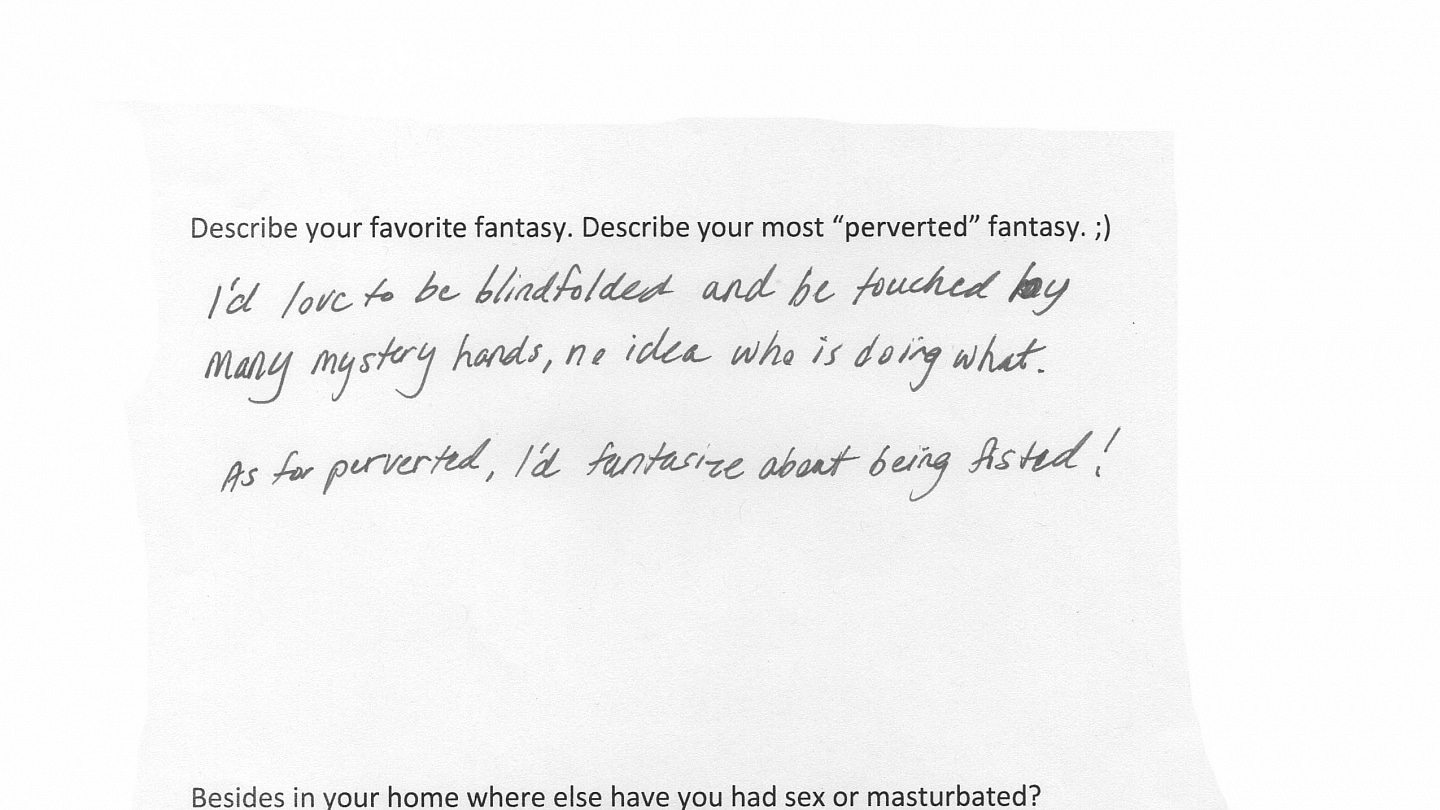 Describe your favorite fantasy. Describe your most “perverted” fantasy. ;)
I'd love to be blindfolded and be touched by
many mystery hands, no idea who is doing what.
As for perverted, I'd fantasize about being fisted!
Besides in your home where else have you had sex or masturbated?